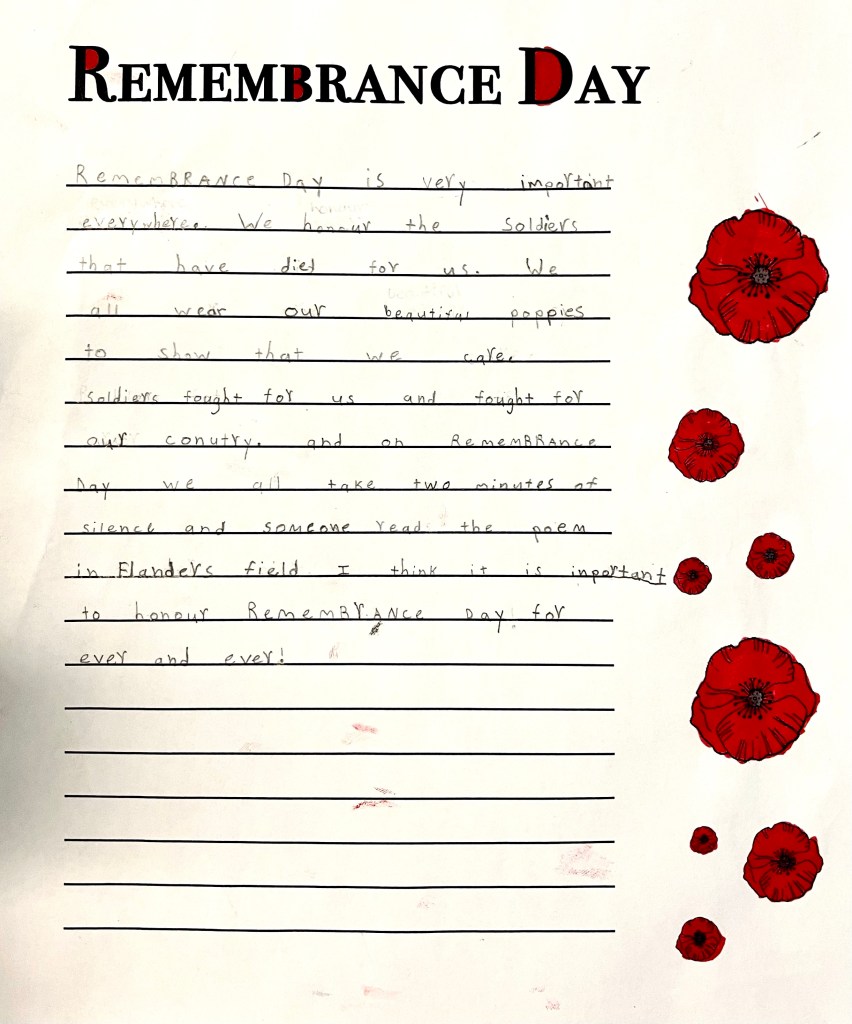 REMEMBRANCE DAY
RememBRANCe Day is very important
everywhere. We honour the Soldiers
that have died for us. We
all wear our beautiful poppies
to show that we care.
Soldiers fought for us and fought for
our conutry. and on RememBRANce
Day we all take two minutes of
silence and someone read the poem
in Flanders field I think it is inportant
to honour RememBrANce Day for
ever and ever!